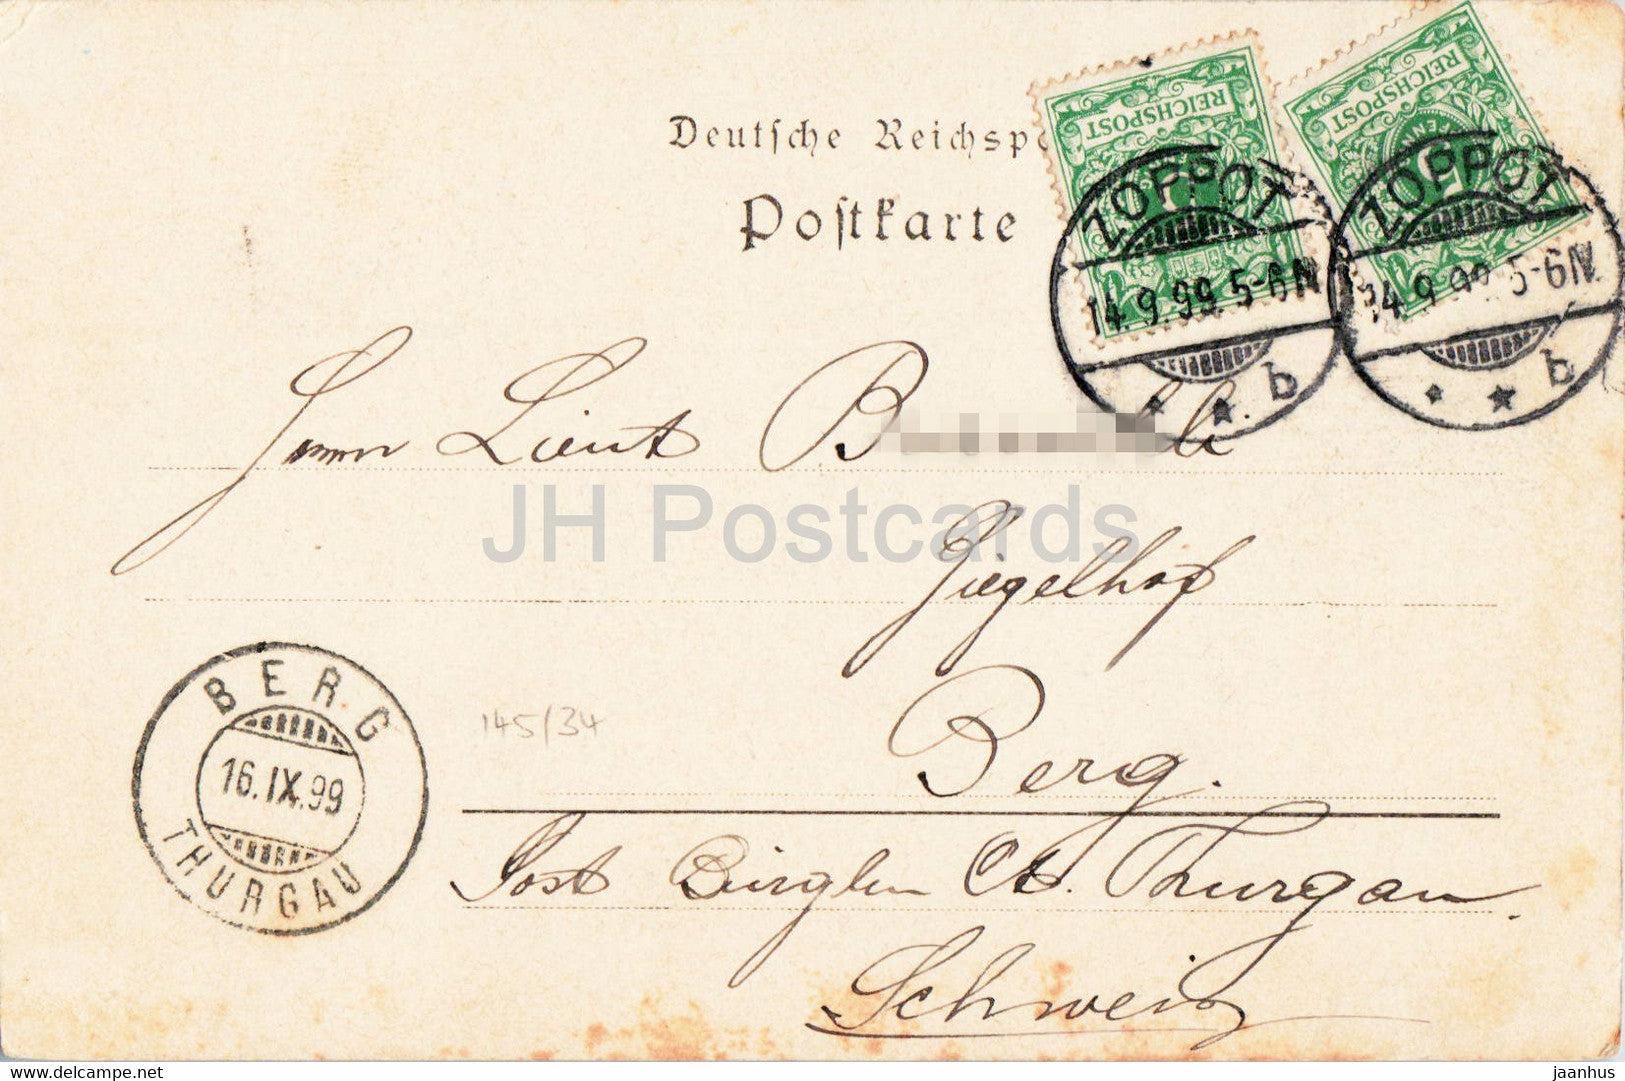 Deutsche Reichspo
Postkarte
REICHSPOST
REICHSPOST
5
ZOPPOT
14.9.99. 5-6N
b
ZOPPOT
14.9.99. 5-6N
b
Herrn Lieut B li.
JH Postcards
Ziegelhof
Berg.
145/34
BERG
16.IX.99
THURGAU
Post Bürglen Ct. Thurgau.
Schweiz
delcampe.net
jaanhus